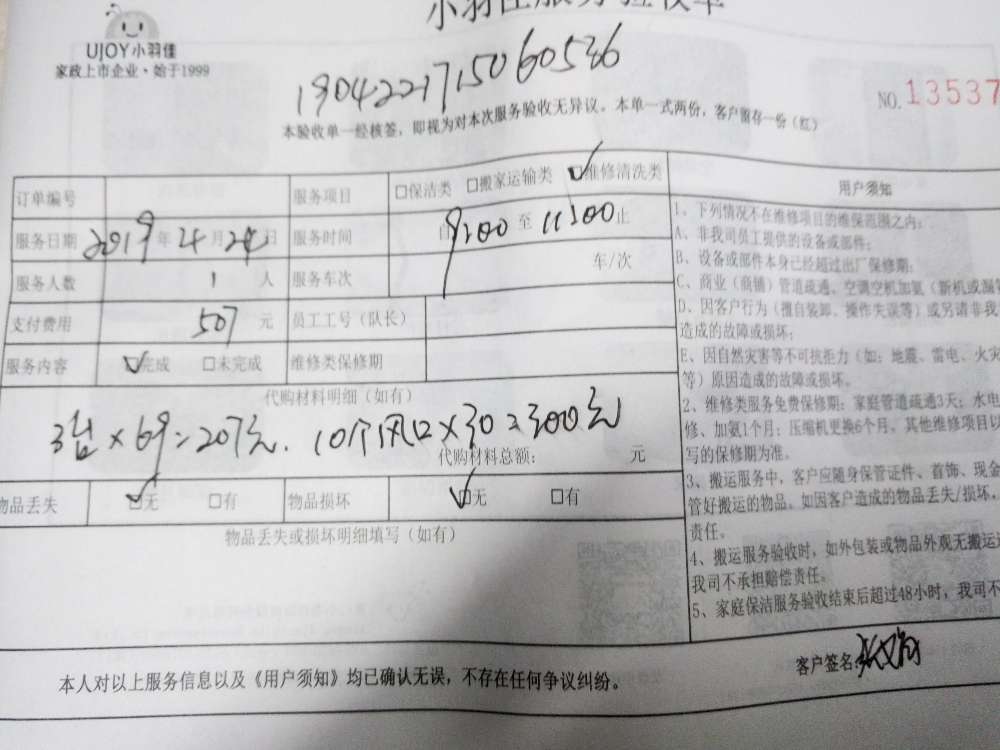 小羽佳服务验收单
UJOY小羽佳
家政上市企业·始于1999
1904221715060536
NO.13537
本验收单一经核签，即视为对本次服务验收无异议。本单一式两份，客户留存一份（红）
订单编号 服务项目 □保洁类 □搬家运输类 ☑维修清洗类
服务日期 2019年4月24日 服务时间 自9:00至11:00止
服务人数 1人 服务车次 车/次
支付费用 507元 员工工号（队长）
服务内容 ☑完成 □未完成 维修类保修期
代购材料明细（如有）
3台×69=207元. 10个风口×30=300元
代购材料总额： 元
物品丢失 ☑无 □有 物品损坏 ☑无 □有
物品丢失或损坏明细填写（如有）
用户须知
1、下列情况不在维修项目的维保范围之内：
A、非我司员工提供的设备或部件；
B、设备或部件本身已经超过出厂保修期；
C、商业（商铺）管道疏通、空调空机加氨（新机或漏
D、因客户行为（擅自装卸、操作失误等）或另请非我
造成的故障或损坏；
E、因自然灾害等不可抗拒力（如：地震、雷电、火灾
等）原因造成的故障或损坏。
2、维修类服务免费保修期：家庭管道疏通3天；水电
修、加氨1个月；压缩机更换6个月。其他维修项目以
写的保修期为准。
3、搬运服务中，客户应随身保管证件、首饰、现金
管好搬运的物品。如因客户造成的物品丢失/损坏，
责任。
4、搬运服务验收时，如外包装或物品外观无搬运
我司不承担赔偿责任。
5、家庭保洁服务验收结束后超过48小时，我司不
本人对以上服务信息以及《用户须知》均已确认无误，不存在任何争议纠纷。
客户签名：